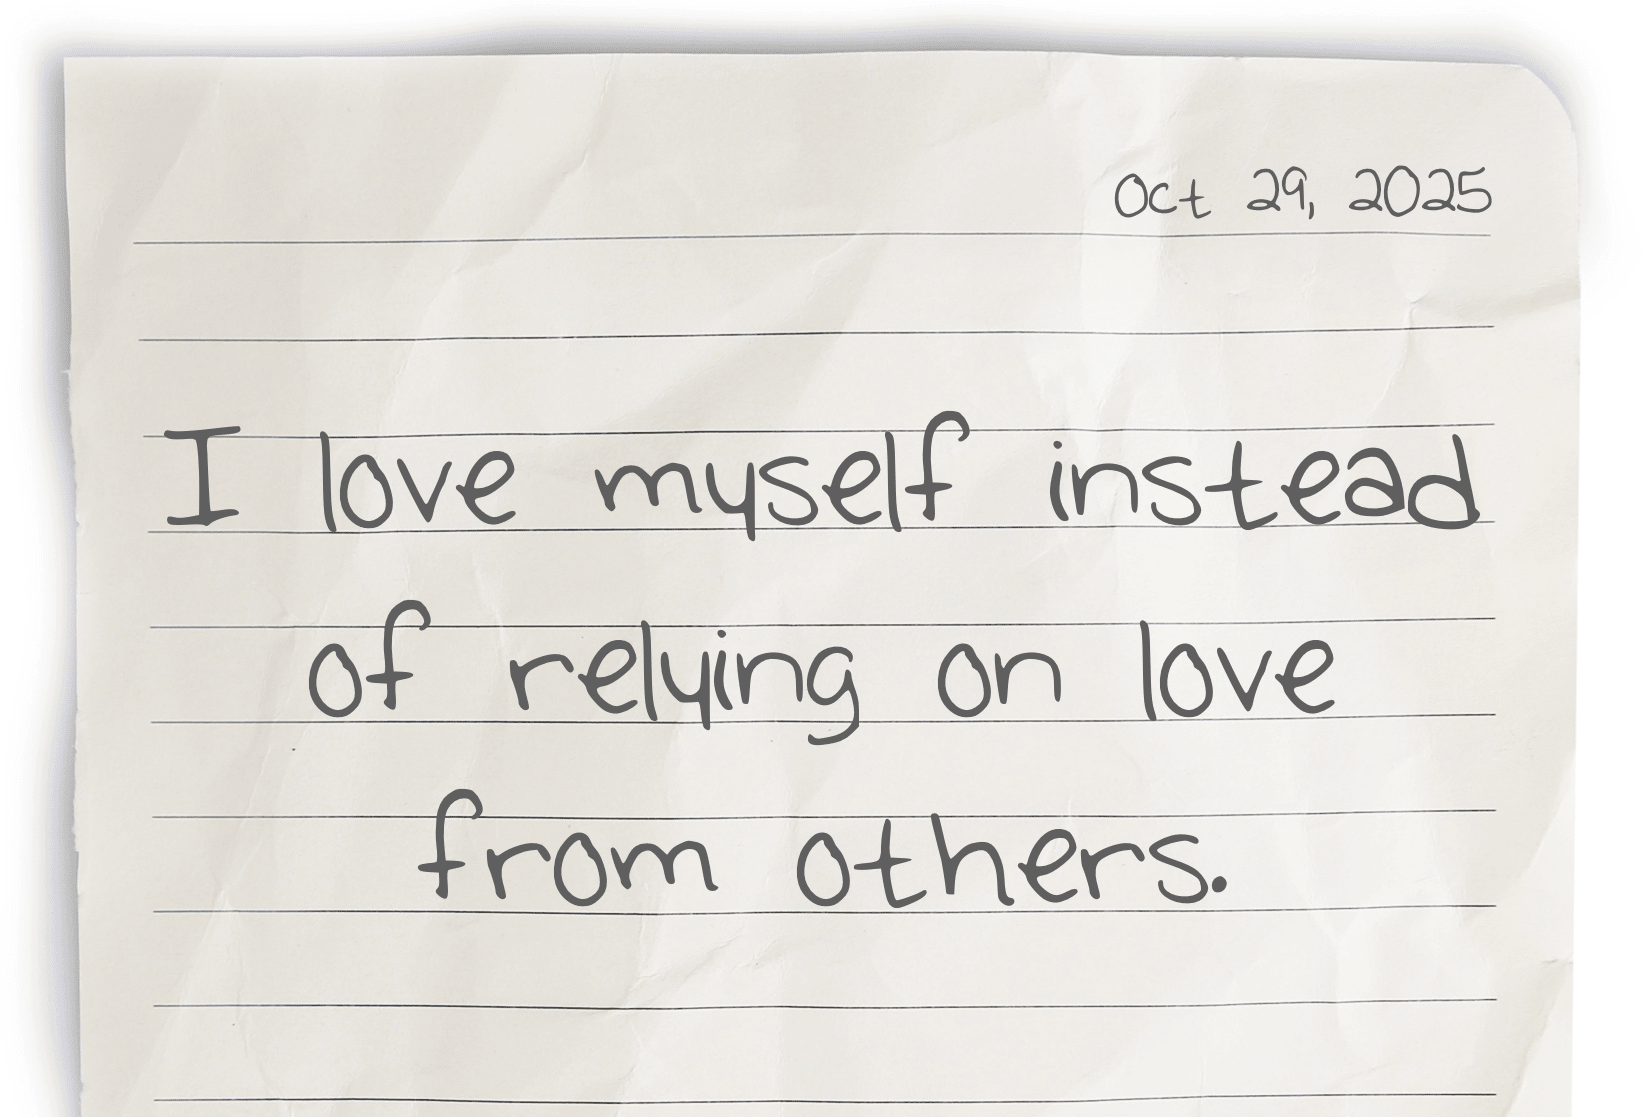 Oct 29, 2025
I love myself instead
of relying on love
from others.